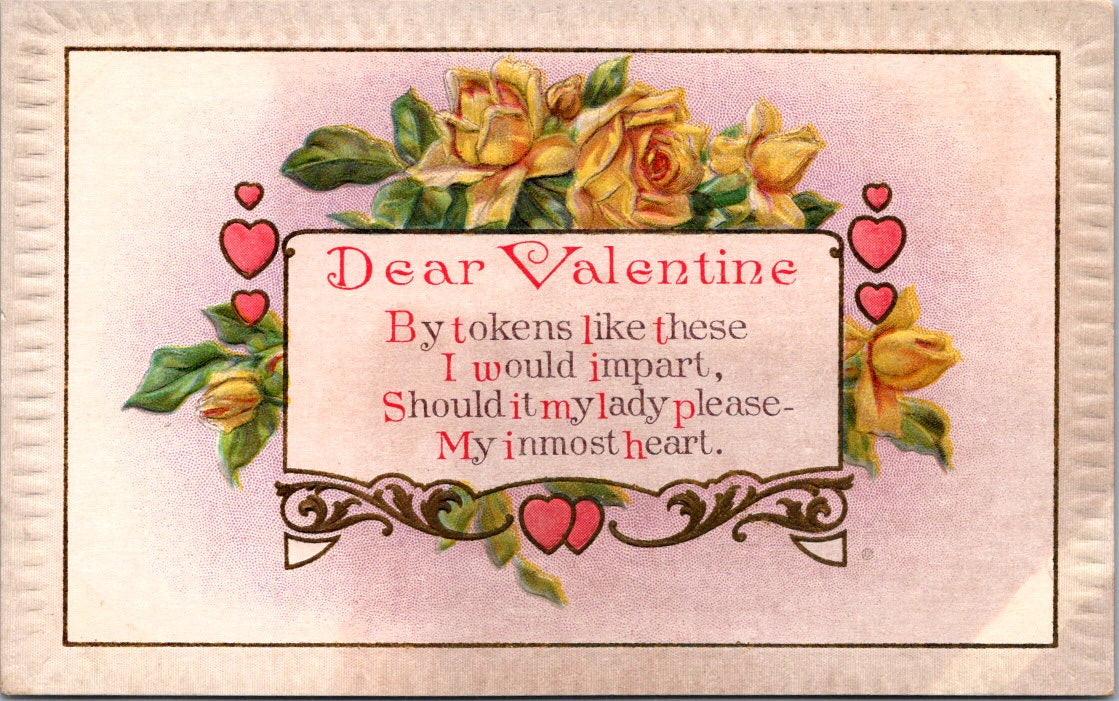 Dear Valentine
By tokens like these
I would impart,
Should it my lady please-
My inmost heart.